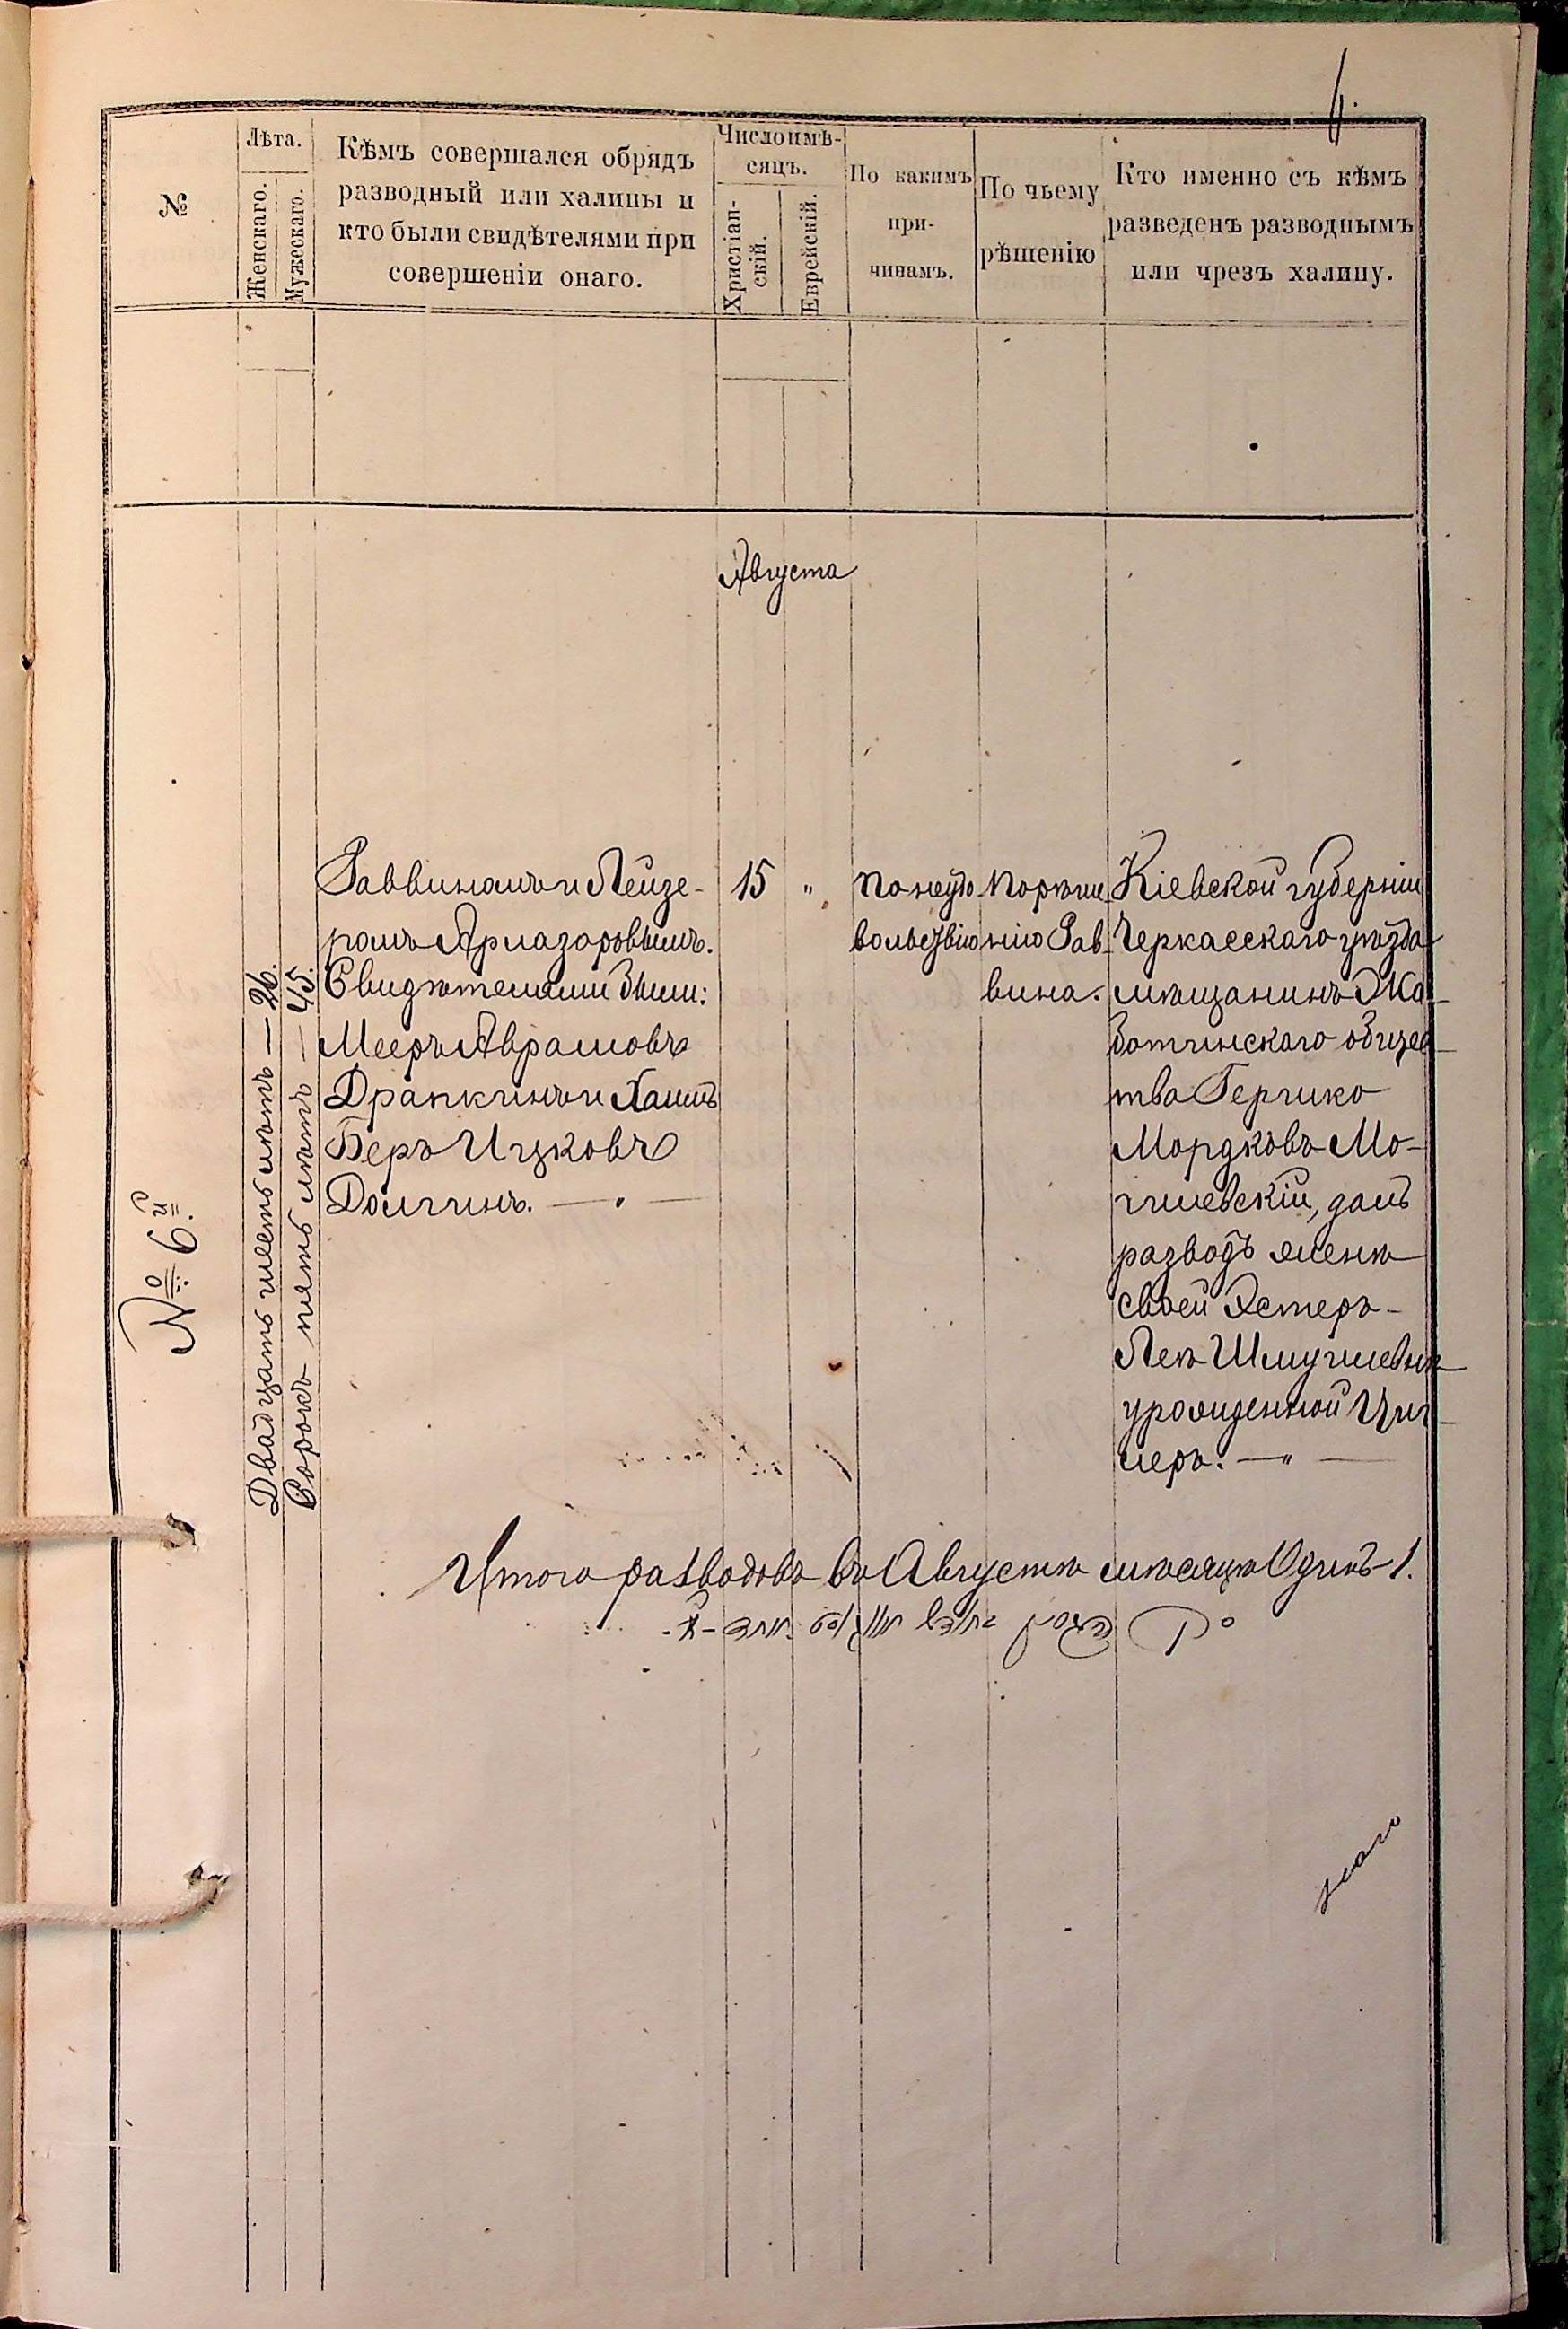 №
Лѣта.
Женскаго.
Мужескаго.
Кѣмъ совершался обрядъ
разводный или халицы и
кто были свидѣтелями при
совершеніи онаго.
Число и мѣ-
сяцъ.
Христіан-
скій.
Еврейскій.
По какимъ
при-
чинамъ.
По чьему
рѣшенію
Кто именно съ кѣмъ
разведенъ разводнымъ
или чрезъ халицу.
Августа
№ 6й.
Двадцать шесть лѣтъ — 26.
Сорокъ пять лѣтъ — 45.
Раввиномъ Лейзе-
ромъ
Свидѣтелями были:
Мееръ Аврамовъ
Драпкинъ и Хаимъ
Беръ Ицковъ
Долгинъ. —
15 "
По неудо
вольствію
По рѣше
нію Рав
вина.
Кіевской губерніи
Черкасскаго уѣзда
мѣщанинъ Жа-
ботинскаго общес-
тва Гершко
Мордковъ Мо-
гилевскій, далъ
разводъ женѣ
своей Эстеръ-
Леѣ Шмулевнѣ
урожденной Циг-
леръ. — " —
Итого разводовъ въ Августѣ мѣсяцѣ Одинъ — 1.